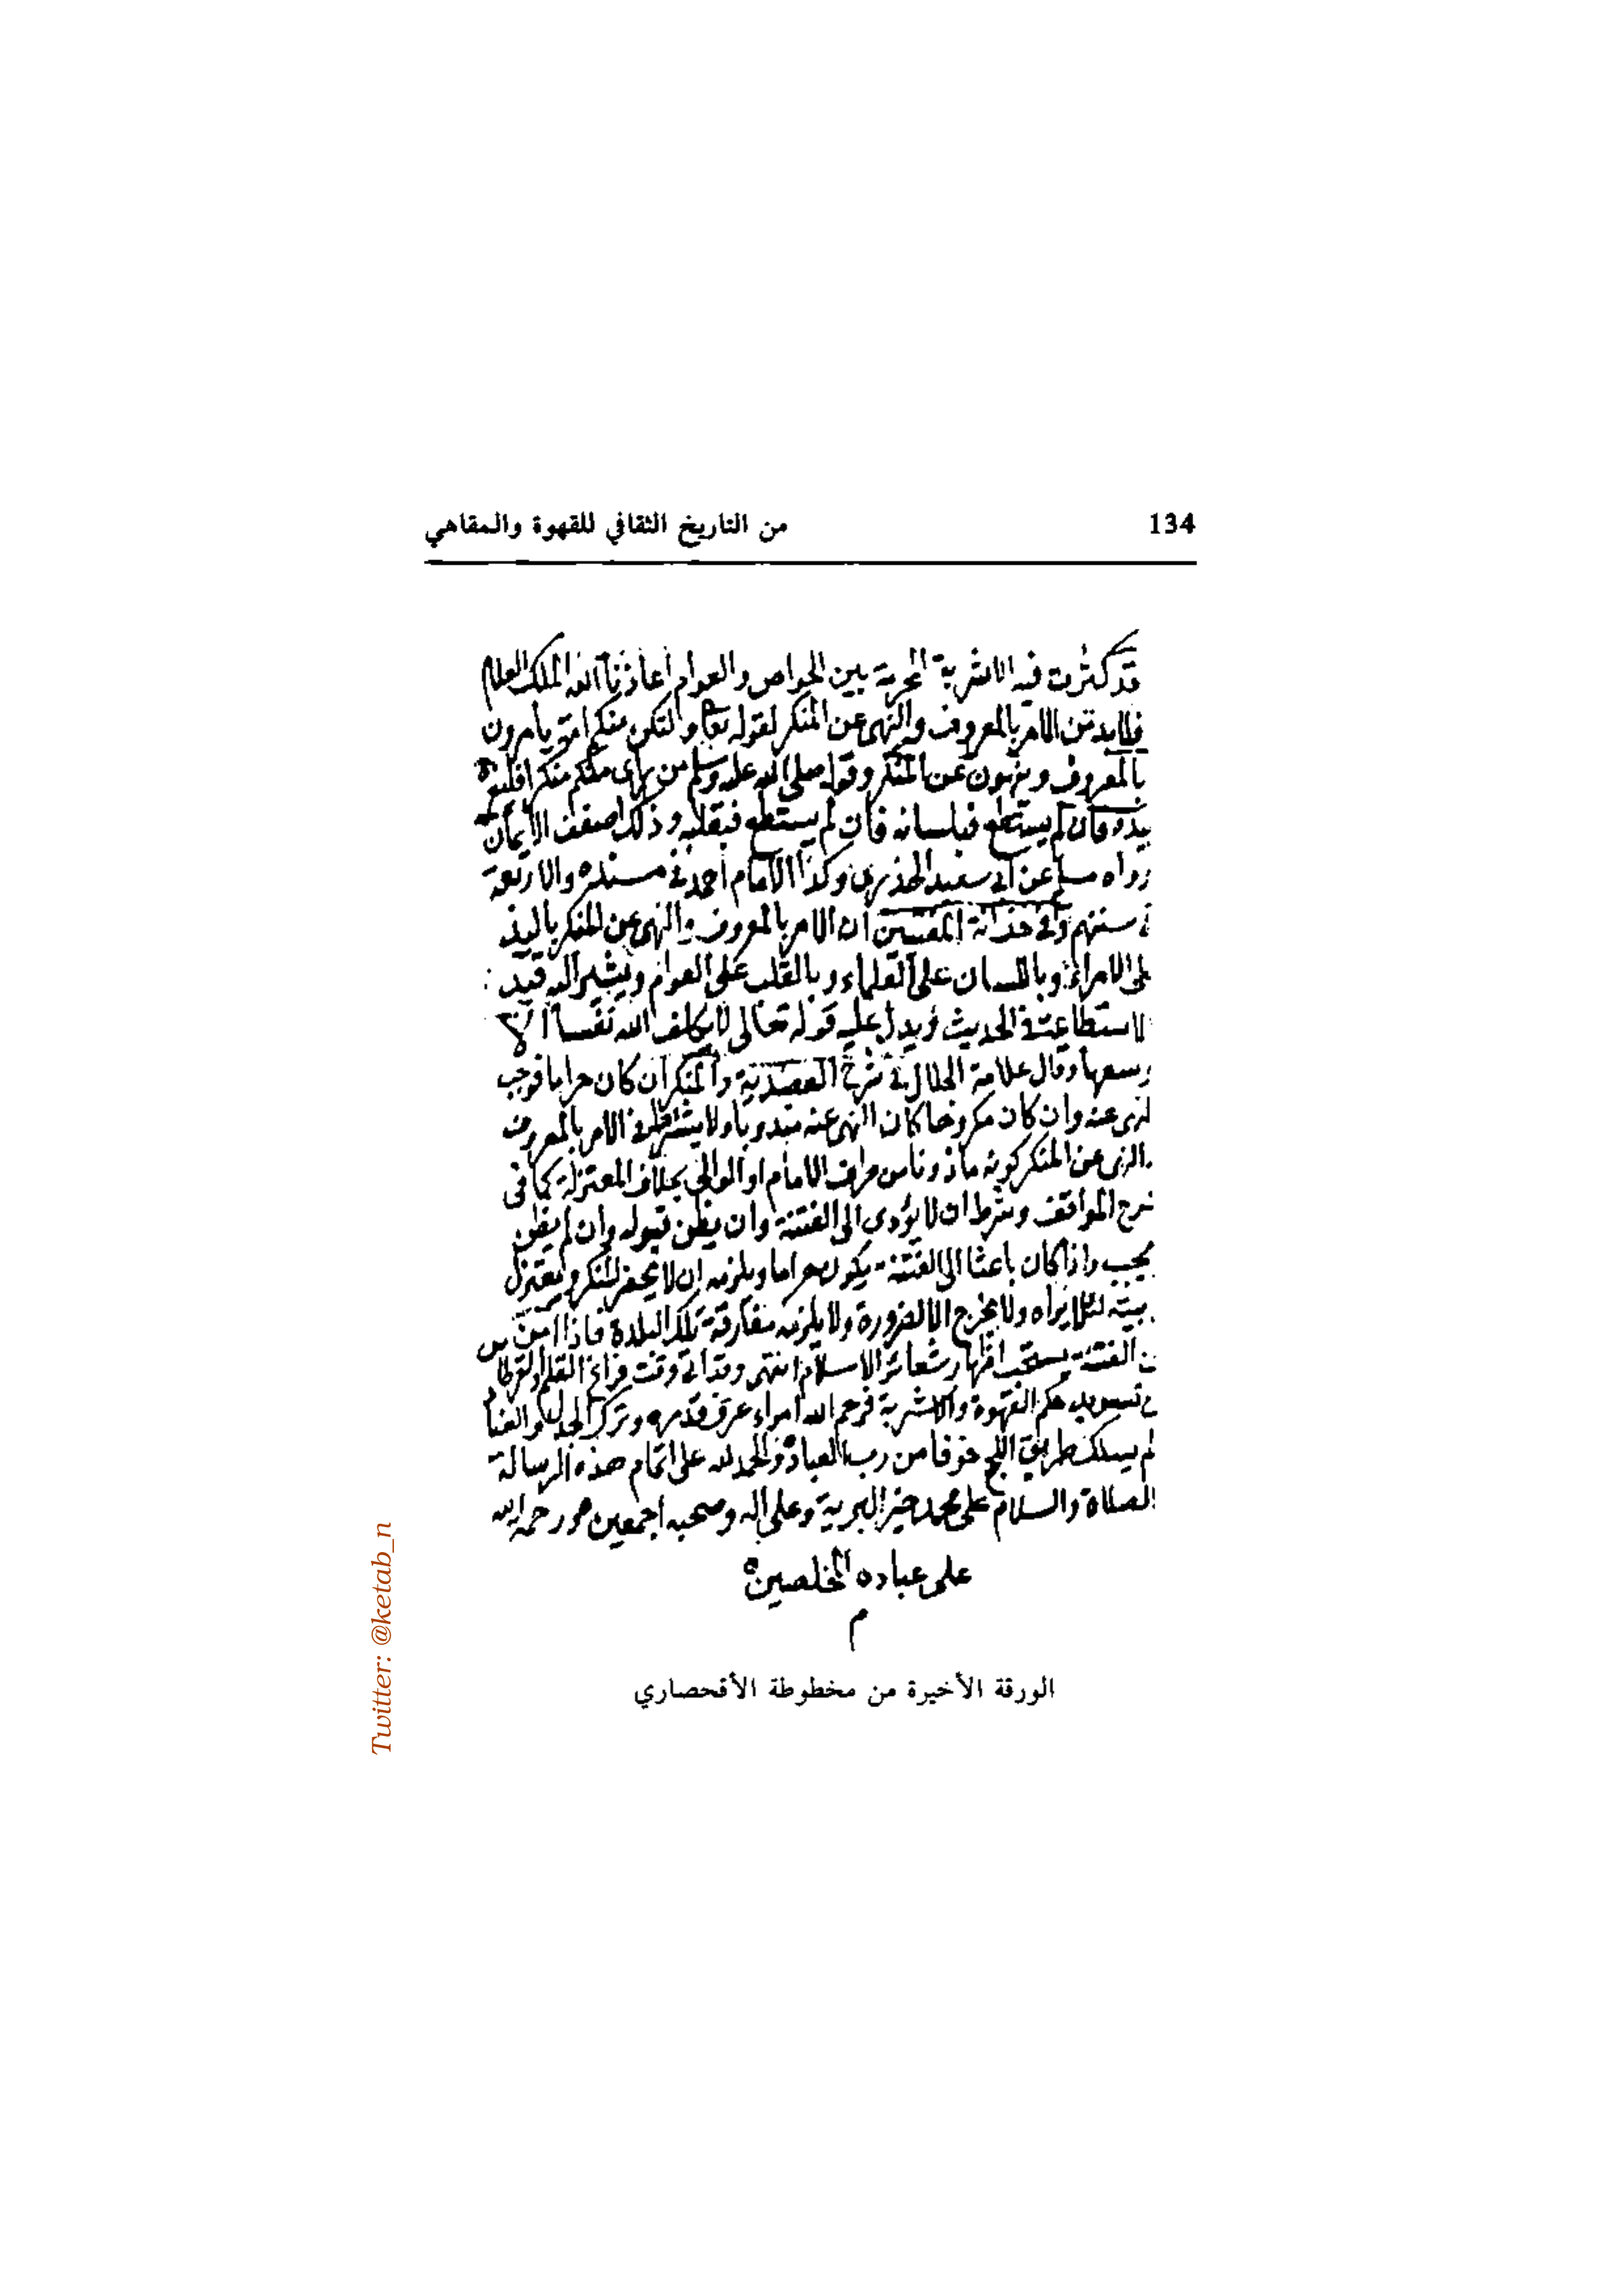 134
من التاريخ الثقافي للقهوة والمقاهي
قد كثرت فيه الاشربة المحرمة بين الخواص والعوام اعاذنا الله الملك العلام
فلابد من الامر بالمعروف والنهى عن المنكر لقوله تعا ولتكن منكم امة يأمرون
بالمعروف وينهون عن المنكر وقوله صلى الله عليه وسلم من راى منكم منكرا فليغ
بيده فان لم يستطع فبلسانه فان لم يستطع فبقلبه وذلك اضعف الايمان
رواه مسلم عن ابى سعيد الخذرى وكذا الامام احمد فى مسنده والاربعة
سننهم وفى خزانة المفتيين ان الامر بالمعروف والنهى عن المنكر باليد
على الامراء وباللسان على العلماء وبالقلب على العوام ويشير اليه قيد
لاستطاعة فى الحديث ويدل عليه قوله تعالى لا يكلف الله نفسا الا
وسعها وقال علامة الجلال فى شرح العضدية والمنكر ان كان حراما فوجب
لنهى عنه وان كان مكروها كان النهى عنه مندوبا ولا يشترط فى الامر بالمعروف
والنهى عن المنكر كونه ماذونا من طرف الامام او الوالى بخلاف المعتزلة كما فى
شرح المواقف وشرط ان لا يؤدى الى الفتنة وان يظن قبوله وان لم يظن
يجب واذا كان باعثا الى الفتنة يكون حراما ويلزمه ان لا يحضر المنكر ويعتزل
بيته لئلا يراه ولا يخرج الا لضرورة ولا يلزمه مفارقة تلك البلدة فاذا امن
الفتنة يستحب اظهار شعائر الاسلام انتهى وقد اتى وقت فراغ القلم
تسويد حكم القهوة والاشربة فرحم الله امراء عرف قدره وترك الجدل
لم يسلك طريق خوفا من رب العباد والحمد لله على اتمام هذه الرسالة
الصلاة والسلام على محمد خير البرية وعلى اله وصحبه اجمعين ورحمة الله
على عباده المخلصين
م
الورقة الأخيرة من مخطوطة الأقحصاري
Twitter: @ketab_n